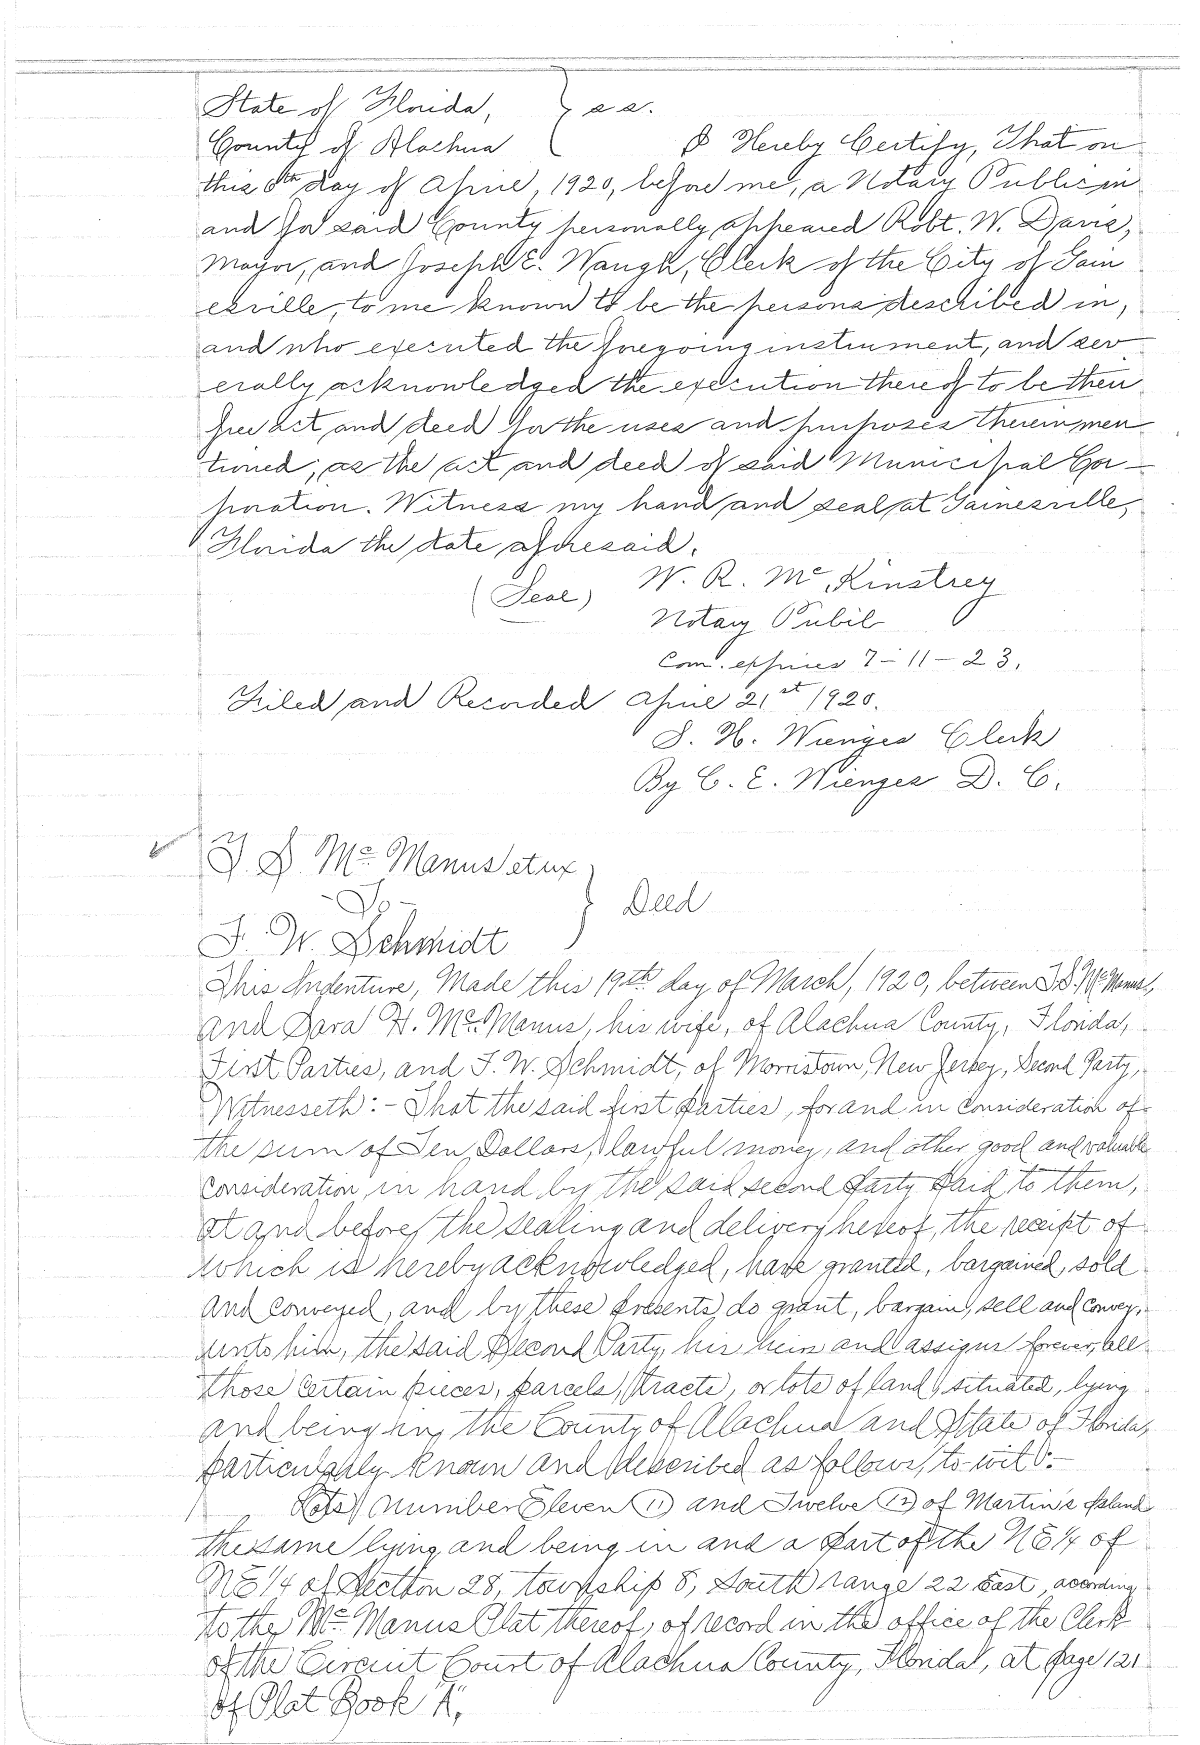 State of Florida, } s s.
County of Alachua I Hereby Certify, That on
this 8th day of April, 1920, before me, a Notary Public in
and for said County personally appeared Robt. W. Davis,
Mayor, and Joseph E. Waugh, Clerk of the City of Gain
esville, to me known to be the persons described in,
and who executed the foregoing instrument, and sev
erally acknowledged the execution thereof to be their
free act and deed for the uses and purposes therein men
tioned; as the act and deed of said Municipal Cor-
poration. Witness my hand and seal at Gainesville,
Florida the date aforesaid.
(Seal) W. R. Mc.Kinstrey
Notary Publi
Com. expires 7-11-23.
Filed and Recorded April 21st 1920.
S. H. Wienges Clerk
By C. E. Wienges D. C.
T. S. Mc Manus et ux
-To- } Deed
F. W. Schmidt
This Indenture, Made this 19th day of March, 1920, between T.S. McManus,
and Sara H. McManus, his wife, of Alachua County, Florida,
First Parties, and F. W. Schmidt, of Morristown, New Jersey, Second Party,
Witnesseth:- That the said first parties, for and in consideration of
the sum of Ten Dollars, lawful money, and other good and valuable
consideration in hand by the said second party paid to them,
at and before the sealing and delivery hereof, the receipt of
which is hereby acknowledged, have granted, bargained, sold
and conveyed, and by these presents do grant, bargain, sell and convey,
unto him, the said Second Party, his heirs and assigns forever, all
those certain pieces, parcels, tracts, or lots of land, situated, lying
and being in the County of Alachua and State of Florida,
particularly known and described as follows, to-wit:-
Lots Number Eleven (11) and Twelve (12) of Martin's Island
the same lying and being in and a part of the NE 1/4 of
NE 1/4 of Section 28, township 8, South range 22 East, acording
to the McManus Plat thereof, of record in the office of the Clerk
of the Circuit Court of Alachua County, Florida, at page 121
of Plat Book "A",